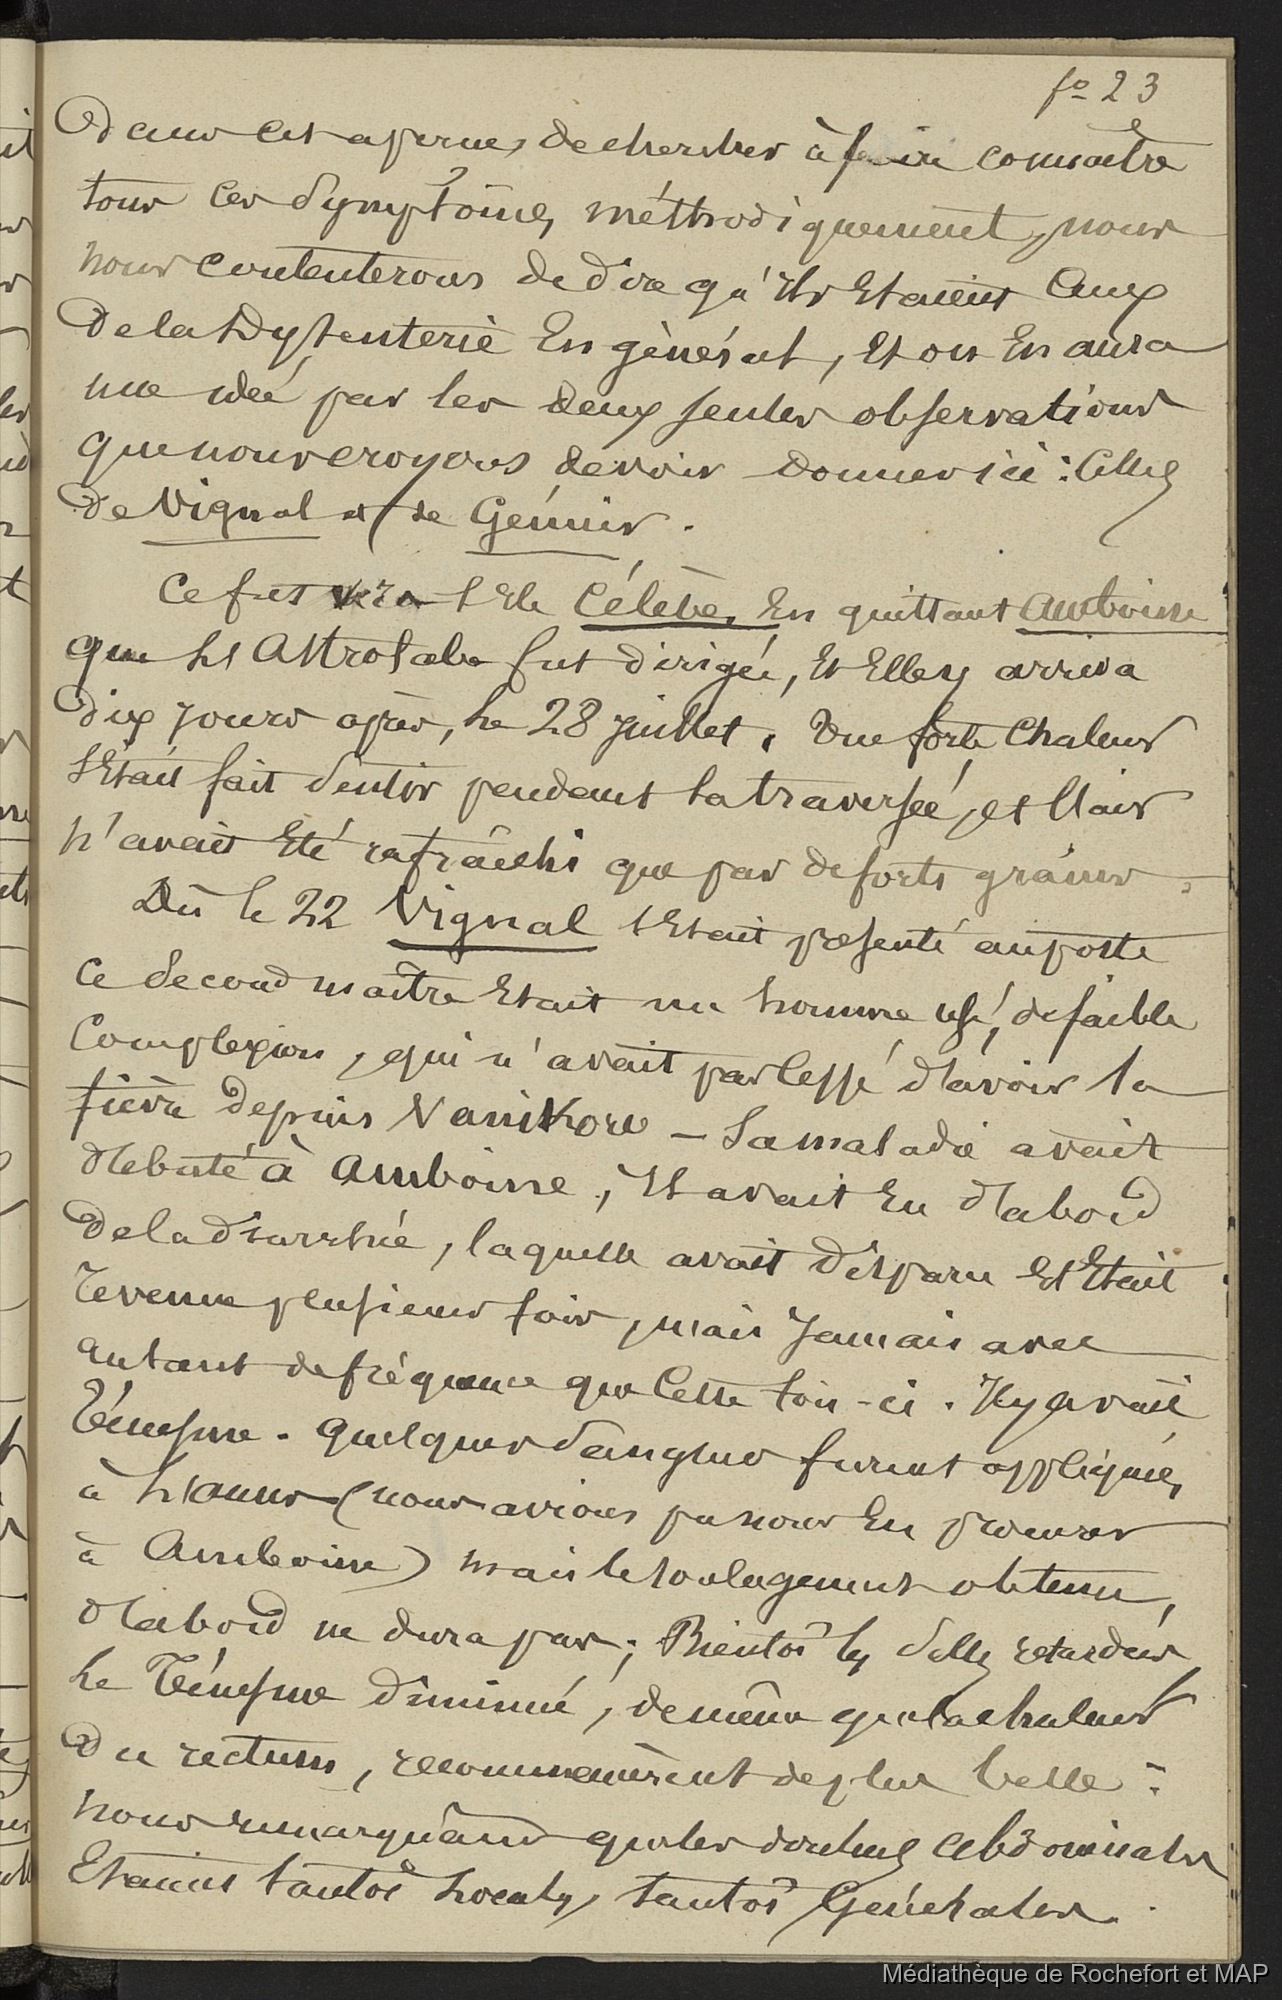 fo 23
Dans cet aperçu, de chercher à faire connaître
tous ces Symptômes méthodiquement, nous
nous contenterons de dire qu'ils Etaient Ceux
De la Dyssenterie En général, Et on En aura
une idée par les deux seules observations
que nous croyons devoir donner ici : Celles
De Vignal et de Génnier.
Ce fut vers l'Ile Célèbes, En quittant Amboine
que l'Astrolabe fut dirigée, Et Elle y arriva
dix jours après, le 28 juillet. Une forte Chaleur
s'Etait fait sentir pendant la traversée, et l'air
n'avait Eté rafraîchi que par de forts grains.
Dès le 22 Vignal s'Etait présenté au poste
Ce Second maître Etait un homme usé, de faible
Complexion, qui n'avait pas Cessé d'avoir la
fièvre depuis Vanikoro — Sa maladie avait
débuté à Amboine, Il avait Eu d'abord
De la diarrhée, laquelle avait disparu Et Etait
revenue plusieurs fois, mais Jamais avec
autant de fréquence que Cette fois-ci. Il y avait
Ténesme. quelques sangsues furent appliquées
à l'anus (nous avions pu nous En procurer
à Amboine) mais le soulagement obtenu,
d'abord ne dura pas; Bientôt les selles retardées
le Ténesme diminué, de même que la chaleur
Du rectum, recommencèrent de plus belle :
nous remarquâmes que les douleurs abdominales
Etaient tantôt locales, tantôt Générales.
Médiathèque de Rochefort et MAP